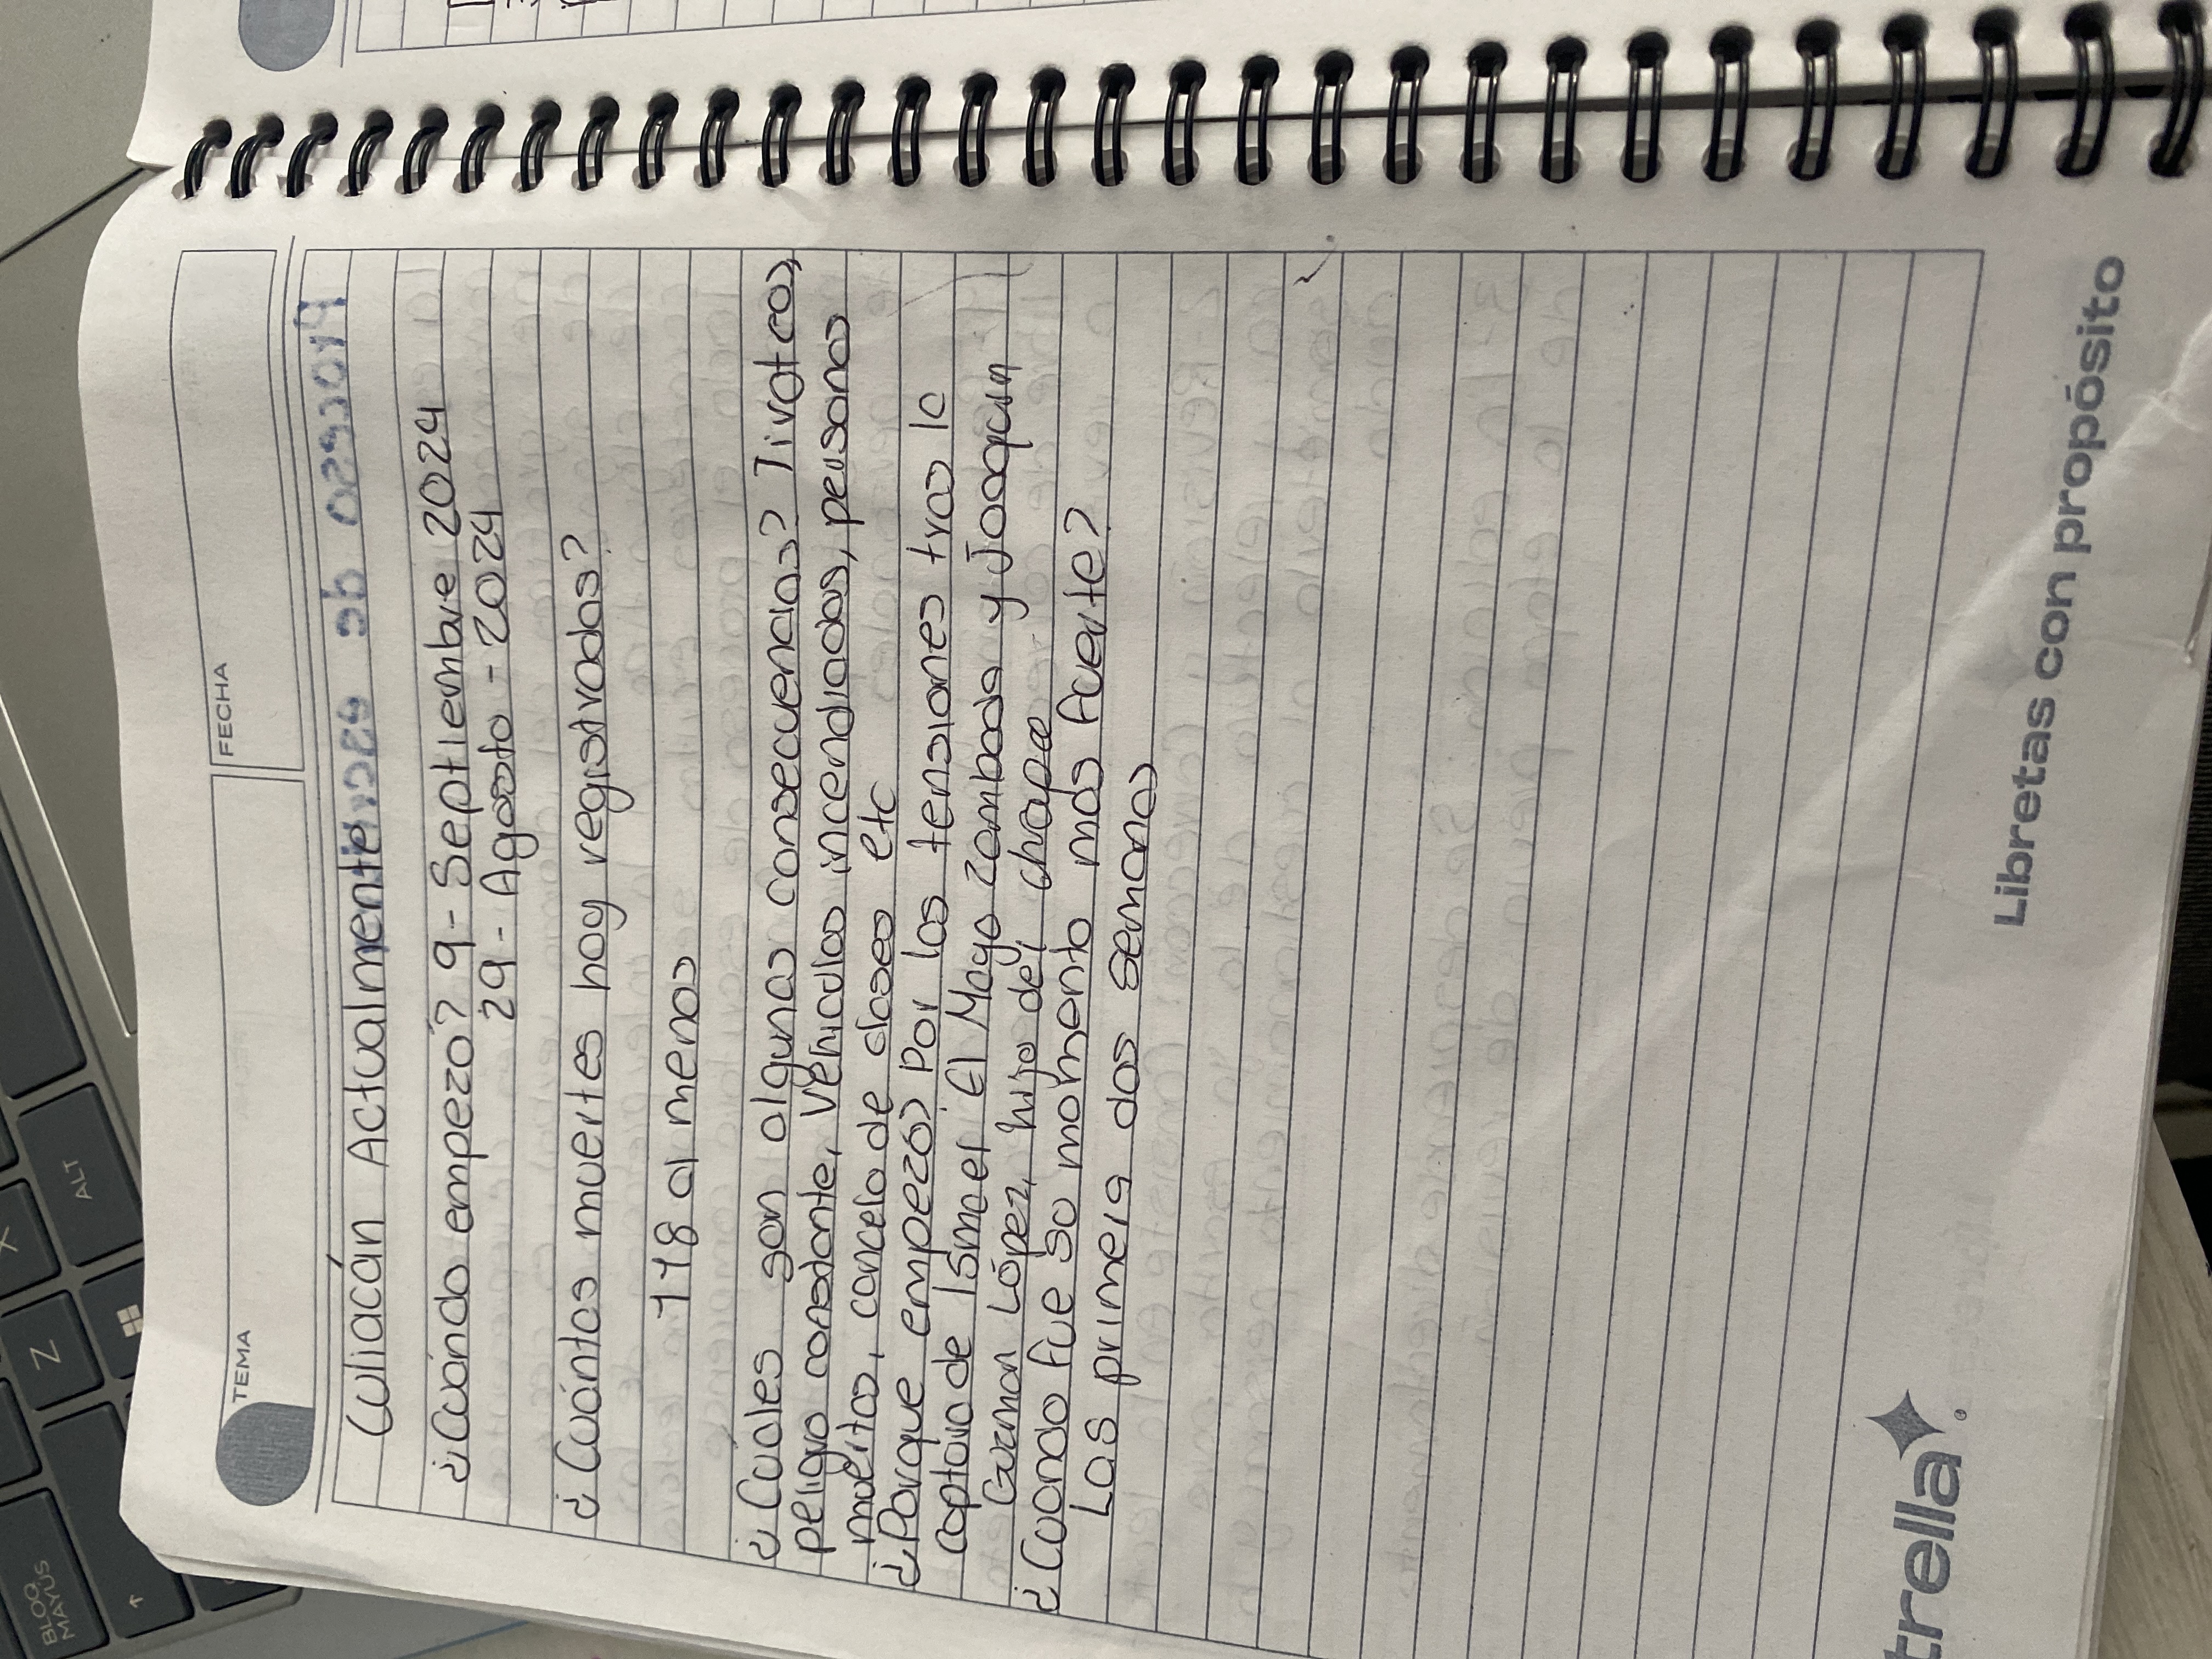 TEMA
FECHA
Culiacán Actualmente
¿Cuándo empezó? 9 - Septiembre 2024
29 - Agosto - 2024
¿Cuántas muertes hay registradas?
118 al menos
¿Cúales son algunas consecuencias? Tivotcos,
peligro constante, vehiculos incendiados, personas
muertas, cancelo de clases etc
¿Porque empezó? Por las tensiones tras lc
captura de Ismael El Mayo zambada y Joaquin
Guzman López, hijo del chapo
¿Cuando fue so momento mas fuerte?
Las primeia dos semanas
Libretas con propósito
trella
BLOQ MAYUS
Z
X
ALT